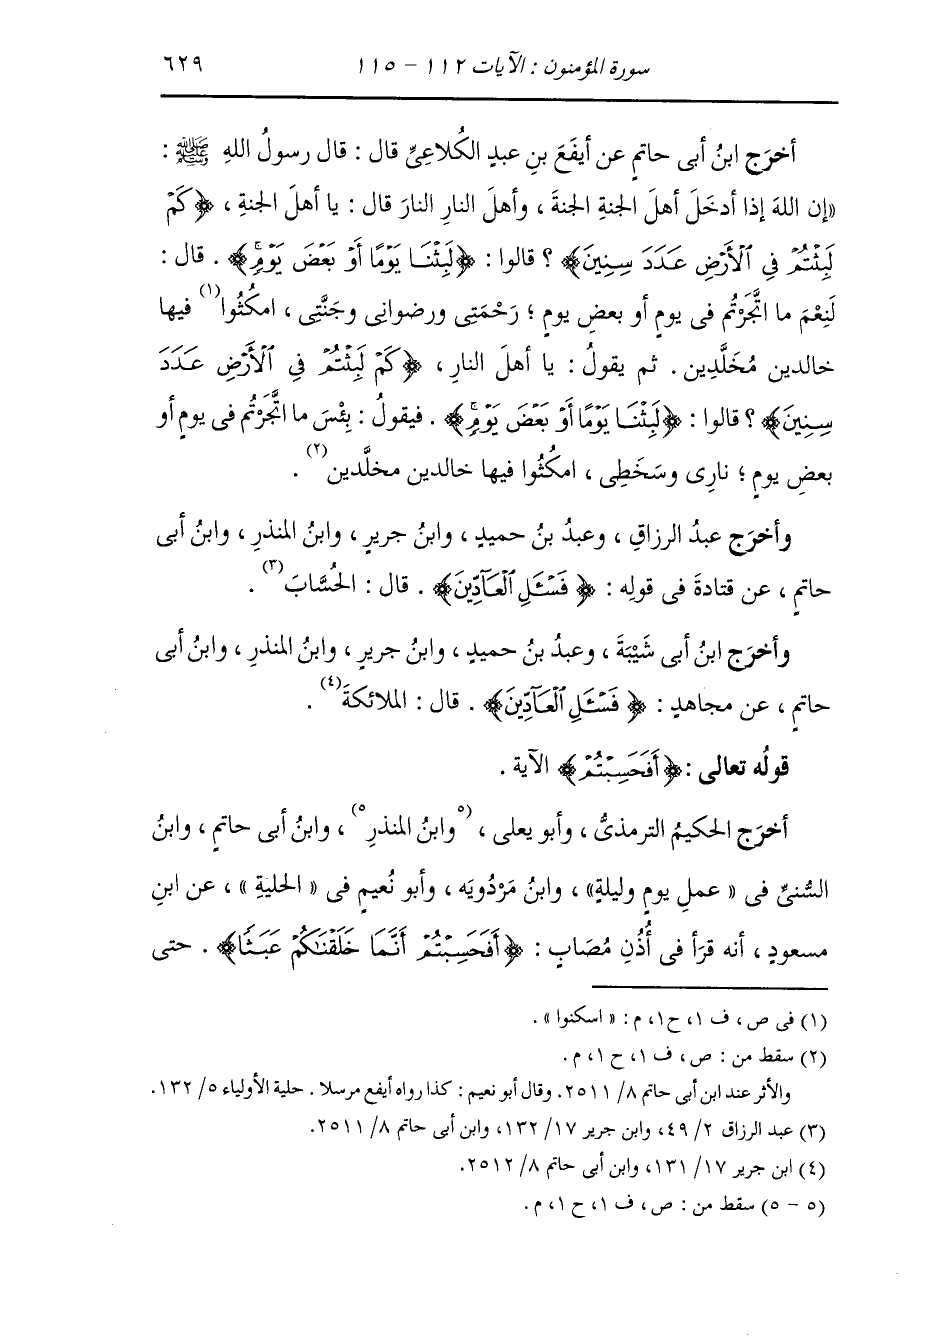 سورة المؤمنون : الآيات ١١٢ - ١١٥ ٦٢٩
أخرَج ابنُ أبى حاتمٍ عن أيفَعَ بنِ عبدٍ الكُلاعِىِّ قال : قال رسولُ اللهِ ﷺ :
«إن اللهَ إذا أدخَلَ أهلَ الجنةِ الجنةَ ، وأهلَ النارِ النارَ قال : يا أهلَ الجنةِ ، ﴿كَمۡ
لَبِثۡتُمۡ فِي ٱلۡأَرۡضِ عَدَدَ سِنِينَ﴾ ؟ قالوا : ﴿لَبِثۡنَا يَوۡمًا أَوۡ بَعۡضَ يَوۡمٖ﴾ . قال :
لَنِعْمَ ما اتَّجَرْتُم فى يومٍ أو بعضِ يومٍ ؛ رَحْمَتِى ورضوانِى وجَنَّتِى ، امكُثُوا(١) فيها
خالدين مُخَلَّدِين . ثم يقولُ : يا أهلَ النارِ ، ﴿كَمۡ لَبِثۡتُمۡ فِي ٱلۡأَرۡضِ عَدَدَ
سِنِينَ﴾ ؟ قالوا : ﴿لَبِثۡنَا يَوۡمًا أَوۡ بَعۡضَ يَوۡمٖ﴾ . فيقولُ : بِئْسَ ما اتَّجَرْتُم فى يومٍ أو
بعضِ يومٍ ؛ نارِى وسَخَطِى ، امكُثُوا فيها خالدين مخلَّدين(٢) .
وأخرَج عبدُ الرزاقِ ، وعبدُ بنُ حميدٍ ، وابنُ جريرٍ ، وابنُ المنذرِ ، وابنُ أبى
حاتمٍ ، عن قتادةَ فى قولِه : ﴿فَسۡـَٔلِ ٱلۡعَآدِّينَ﴾ . قال : الحُسَّابَ(٣) .
وأخرَج ابنُ أبى شَيْبَةَ ، وعبدُ بنُ حميدٍ ، وابنُ جريرٍ ، وابنُ المنذرِ ، وابنُ أبى
حاتمٍ ، عن مجاهدٍ : ﴿فَسۡـَٔلِ ٱلۡعَآدِّينَ﴾ . قال : الملائكةَ(٤) .
قولُه تعالى : ﴿أَفَحَسِبۡتُمۡ﴾ الآية .
أخرَج الحكيمُ الترمذىُّ ، وأبو يعلى ، (٥وابنُ المنذرِ٥) ، وابنُ أبى حاتمٍ ، وابنُ
السُّنىِّ فى « عملِ يومٍ وليلةٍ» ، وابنُ مَرْدُويَه ، وأبو نُعيمٍ فى « الحليةِ » ، عن ابنِ
مسعودٍ ، أنه قرَأ فى أُذُنِ مُصَابٍ : ﴿أَفَحَسِبۡتُمۡ أَنَّمَا خَلَقۡنَٰكُمۡ عَبَثٗا﴾ . حتى
(١) فى ص ، ف ١، ح١، م : « اسكنوا » .
(٢) سقط من : ص ، ف ١، ح ١، م .
والأثر عند ابن أبى حاتم ٨/ ٢٥١١. وقال أبو نعيم : كذا رواه أيفع مرسلا . حلية الأولياء ٥/ ١٣٢.
(٣) عبد الرزاق ٢/ ٤٩، وابن جرير ١٧/ ١٣٢، وابن أبى حاتم ٨/ ٢٥١١.
(٤) ابن جرير ١٧/ ١٣١، وابن أبى حاتم ٨/ ٢٥١٢.
(٥ - ٥) سقط من : ص ، ف ١، ح ١، م .